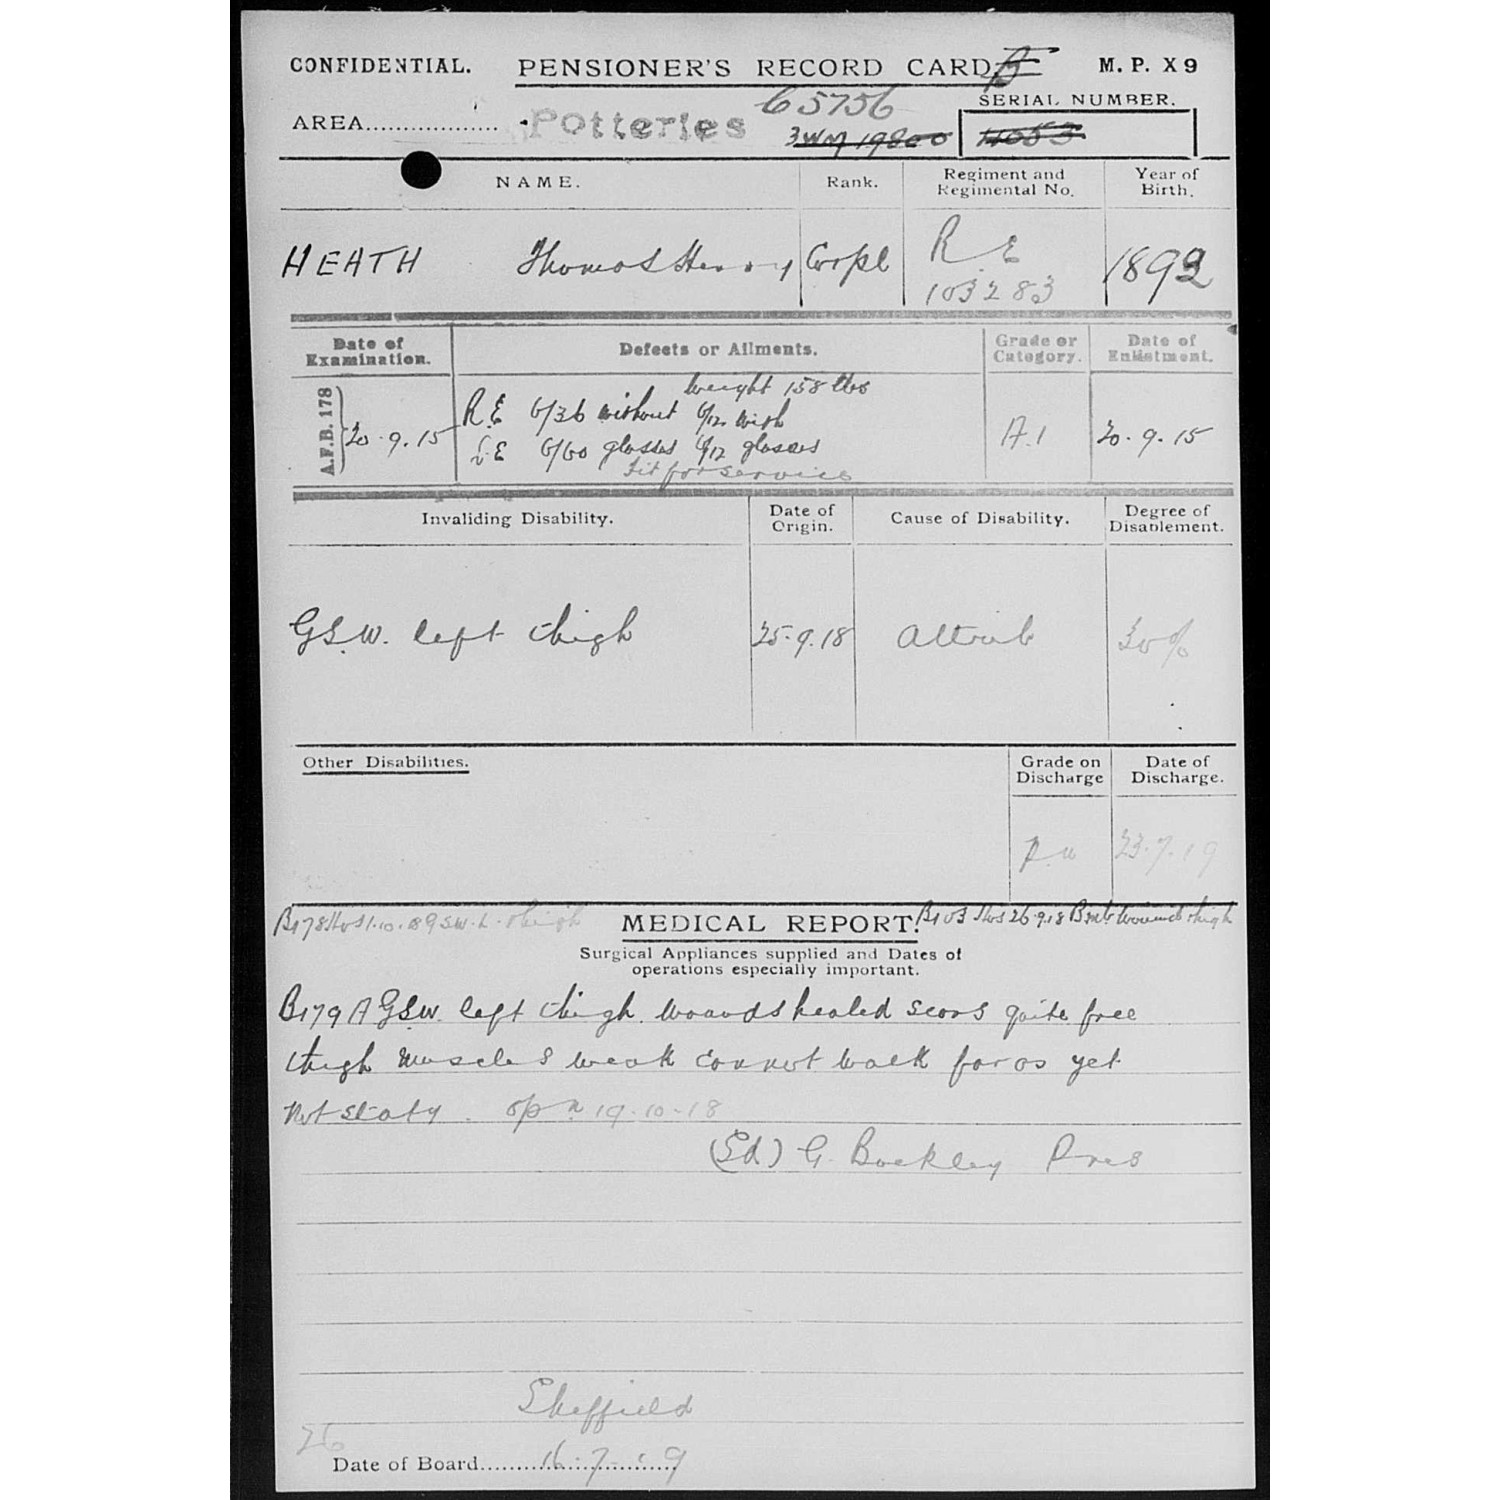 CONFIDENTIAL. PENSIONER'S RECORD CARD M. P. X 9
SERIAL NUMBER.
AREA................... Potteries 65756
3WM 19800 11053
NAME. Rank. Regiment and Regimental No. Year of Birth.
HEATH Thomas Henry Corpl R E 103283 1892
Date of Examination. Defects or Ailments. Grade or Category. Date of Enlistment.
Weight 158 lbs
A.F.B. 178 20.9.15 R.E 6/36 without 6/12 with A.1 20.9.15
L.E 6/60 glasses 6/12 glasses
Fit for service
Invaliding Disability. Date of Origin. Cause of Disability. Degree of Disablement.
GSW. left thigh 25.9.18 Attrib 30%
Other Disabilities. Grade on Discharge Date of Discharge.
23.7.19
B178 Hos 1.10.18 GSW. L. thigh MEDICAL REPORT. B103 Hos 26.9.18 Bomb wound thigh
Surgical Appliances supplied and Dates of
operations especially important.
B179A GSW. left thigh. Wounds healed scars quite free
thigh muscles weak cannot walk far as yet
not staty. opn 19-10-18
(Sd) G. Buckley Pres
Sheffield
26
Date of Board 16.7.19